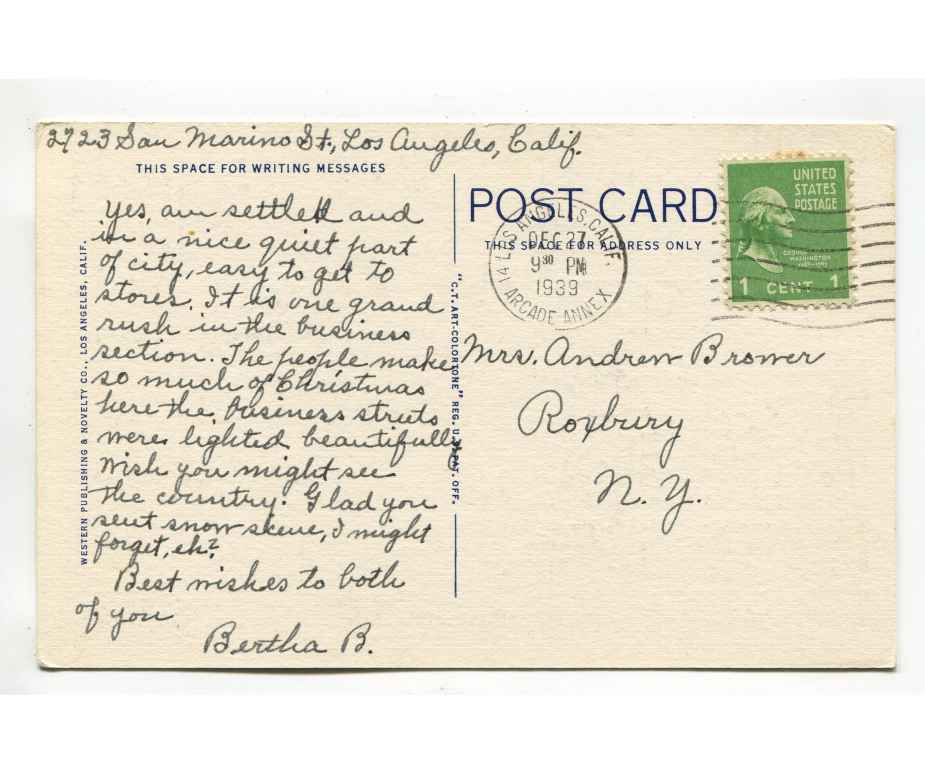 2723 San Marino St., Los Angeles, Calif.
THIS SPACE FOR WRITING MESSAGES
Yes, am settled and
in a nice quiet part
of city, easy to get to
stores. It is one grand
rush in the business
section. The people make
so much of Christmas
here the business streets
were lighted beautifully
Wish you might see
the country. Glad you
sent snow skene, I might
forget, eh?
Best wishes to both
of you
Bertha B.
WESTERN PUBLISHING & NOVELTY CO., LOS ANGELES, CALIF.
"C.T. ART-COLORTONE" REG. U.S. PAT. OFF.
POST CARD
THIS SPACE FOR ADDRESS ONLY
LOS ANGELES, CALIF.
DEC 27
9 30 PM
1939
14 ARCADE ANNEX
UNITED
STATES
POSTAGE
GEORGE
WASHINGTON
1 CENT 1
Mrs. Andrew Brower
Roxbury
N. Y.